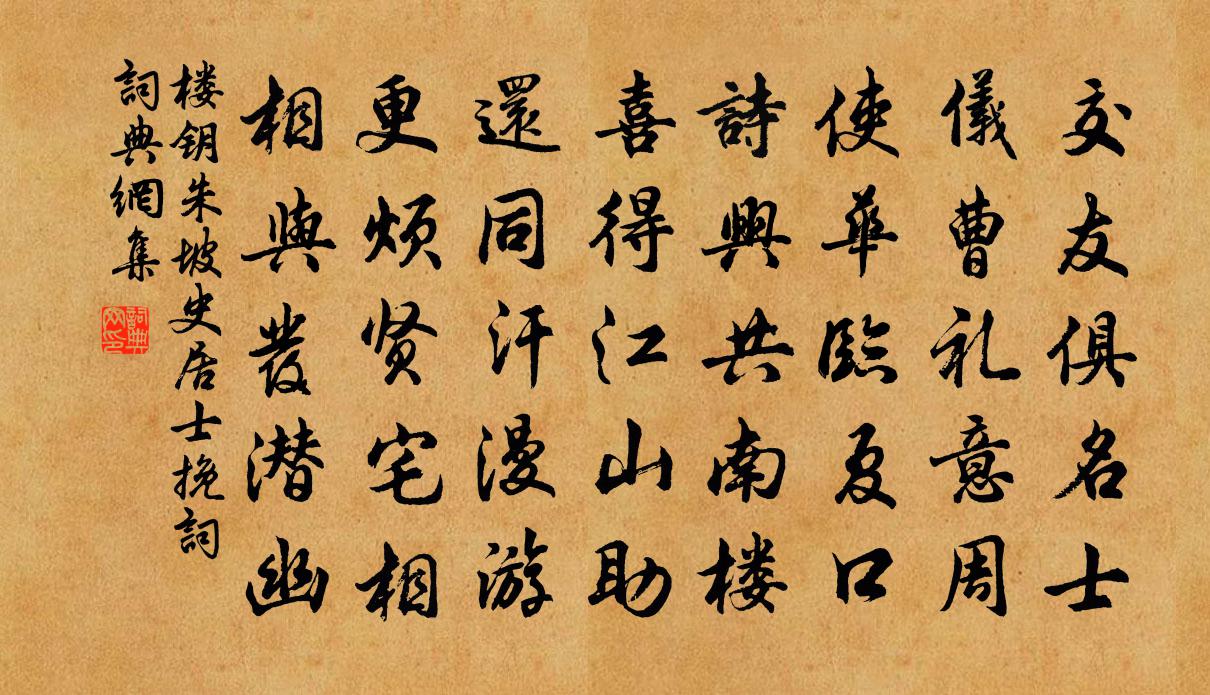 交友俱名士
儀曹礼意周
使華臨夏口
詩興共南楼
喜得江山助
還同汗漫游
更煩贤宅相
相與發潜幽
楼钥朱坡史居士挽詞
詞典網集
詞典
网印